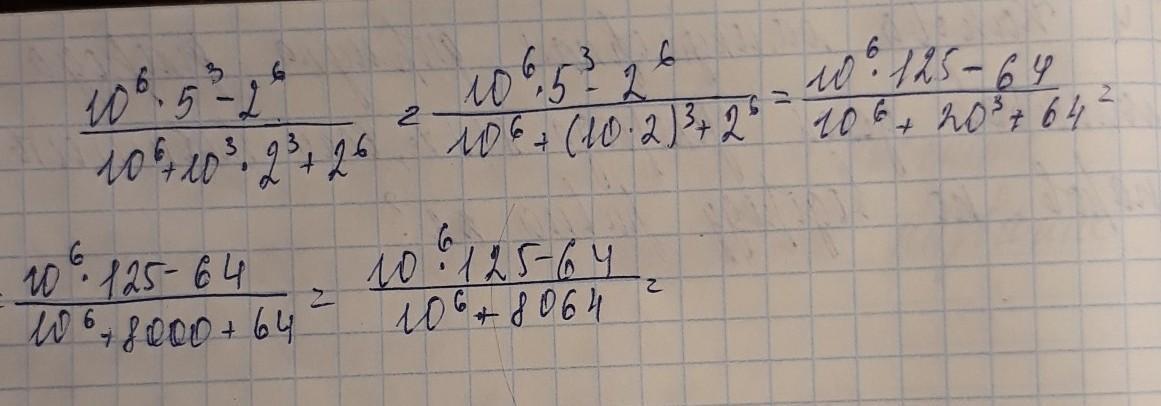 10⁶·5³-2⁶ / 10⁶+10³·2³+2⁶ = 10⁶·5³-2⁶ / 10⁶+(10·2)³+2⁶ = 10⁶·125-64 / 10⁶+20³+64 =
10⁶·125-64 / 10⁶+8000+64 = 10⁶·125-64 / 10⁶+8064 =